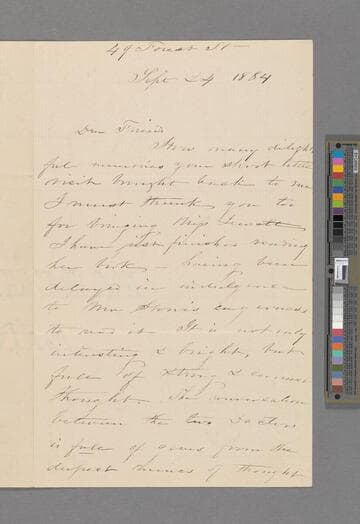 49 Forest St
Sept 24 1884
Dear Friend
How many delight,
ful memories your short little
visit brought back to me
I must thank you too
for bringing Miss Jewett
I have just finished reading
her book – having been
delayed in indulgence
to Mrs eagerness
to read it It is not only
interesting & bright, but
full of strong & earnest
thought The conversation
between the two Doctors
is full of gems from the
deepest mines of thought